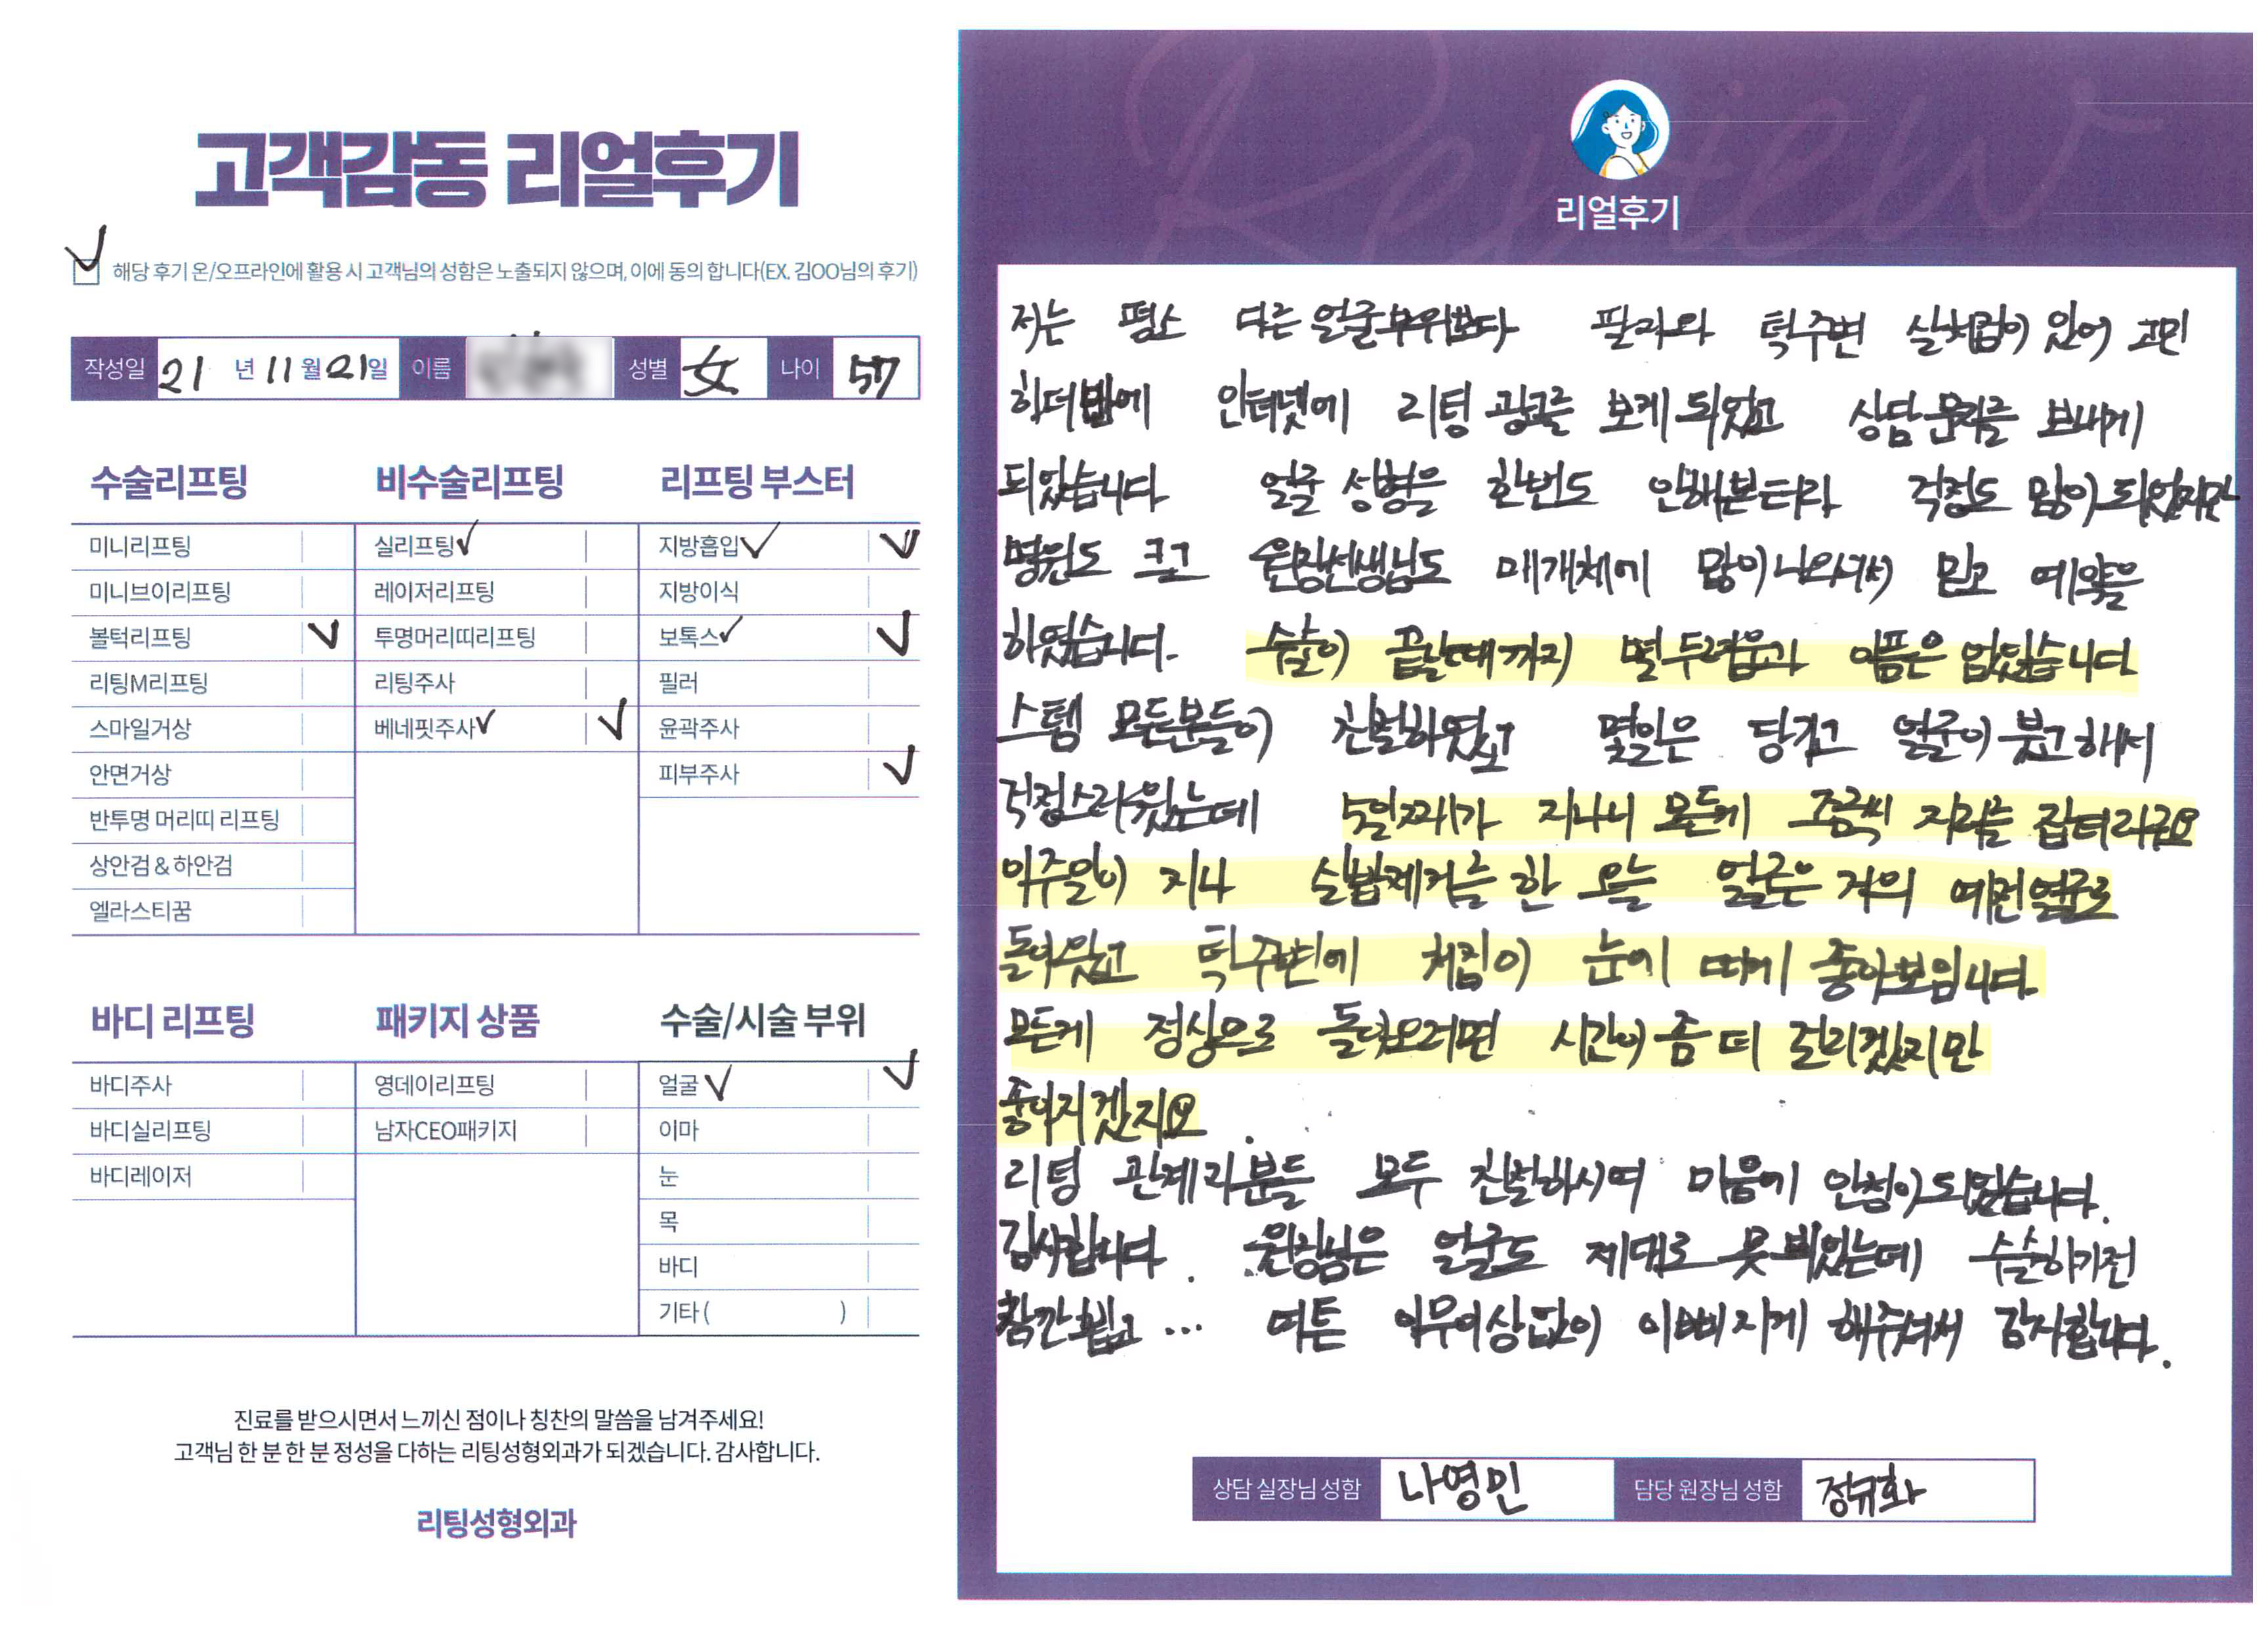 고객감동 리얼후기
해당 후기 온/오프라인에 활용 시 고객님의 성함은 노출되지 않으며, 이에 동의 합니다(EX. 김OO님의 후기)
작성일 21 년 11 월 21 일 이름 성별 女 나이 57
수술리프팅
미니리프팅
미니브이리프팅
볼턱리프팅
리팅M리프팅
스마일거상
안면거상
반투명 머리띠 리프팅
상안검 & 하안검
엘라스티꿈
비수술리프팅
실리프팅
레이저리프팅
투명머리띠리프팅
리팅주사
베네핏주사
리프팅 부스터
지방흡입
지방이식
보톡스
필러
윤곽주사
피부주사
바디 리프팅
바디주사
바디실리프팅
바디레이저
패키지 상품
영데이리프팅
남자CEO패키지
수술/시술 부위
얼굴
이마
눈
목
바디
기타 ( )
진료를 받으시면서 느끼신 점이나 칭찬의 말씀을 남겨주세요!
고객님 한 분 한 분 정성을 다하는 리팅성형외과가 되겠습니다. 감사합니다.
리팅성형외과
Review
리얼후기
저는 평소 다른 얼굴부위보다 팔자와 턱주변 살처짐이 있어 고민
하더밤에 인터넷에 리팅 광고를 보게 되었고 상담 문자를 보내게
되었습니다 얼굴 성형을 한번도 안해본터라 걱정도 많이 되었지만
병원도 크고 원장선생님도 매개체에 많이 나와계셔 믿고 예약을
하였습니다. 수술이 끝날때까지 별 두려움과 아픔은 없었습니다
스텝 모든분들이 친절하였고 몇일은 당기고 얼굴이 붓고 해서
걱정스러웠는데 5일째가 지나니 모든게 조금씩 자리를 잡더라구요
일주일이 지나 실밥제거를 한 오늘 얼굴은 거의 예전얼굴로
돌아왔고 턱주변에 처짐이 눈에 띠게 좋아보입니다.
모든게 정상으로 돌아오려면 시간이 좀 더 걸리겠지만
좋아지겠지요.
리팅 관계자분들 모두 친절하시여 마음에 안정이 되었습니다.
감사합니다. 원장님은 얼굴도 제대로 못 뵈었는데 수술하기전
잠간 뵙고 ... 여튼 아무이상없이 이쁘지게 해주셔서 감사합니다.
상담 실장님 성함 나영민 담당 원장님 성함 정규화